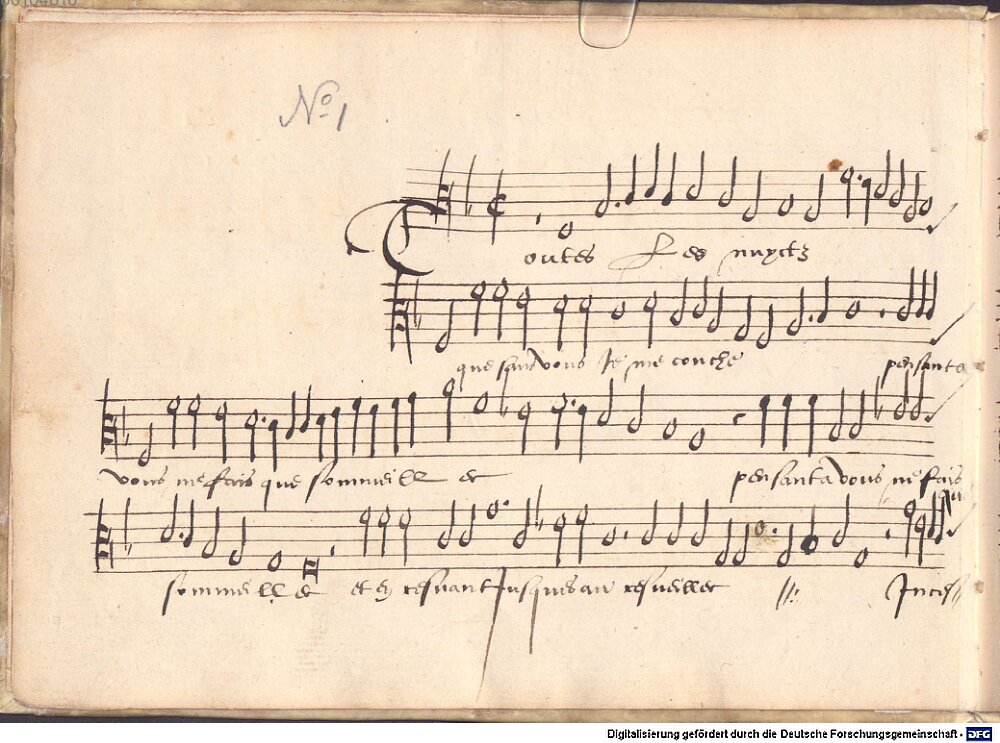 No 1
Toutes Les nuyctz
que sans vous Je me couche pensant a
vous ne fais que sommeill et pensant a vous ne fais
qu
sommeill et et en resvant Jusques au resveillet //: Inces//
Digitalisierung gefördert durch die Deutsche Forschungsgemeinschaft - DFG